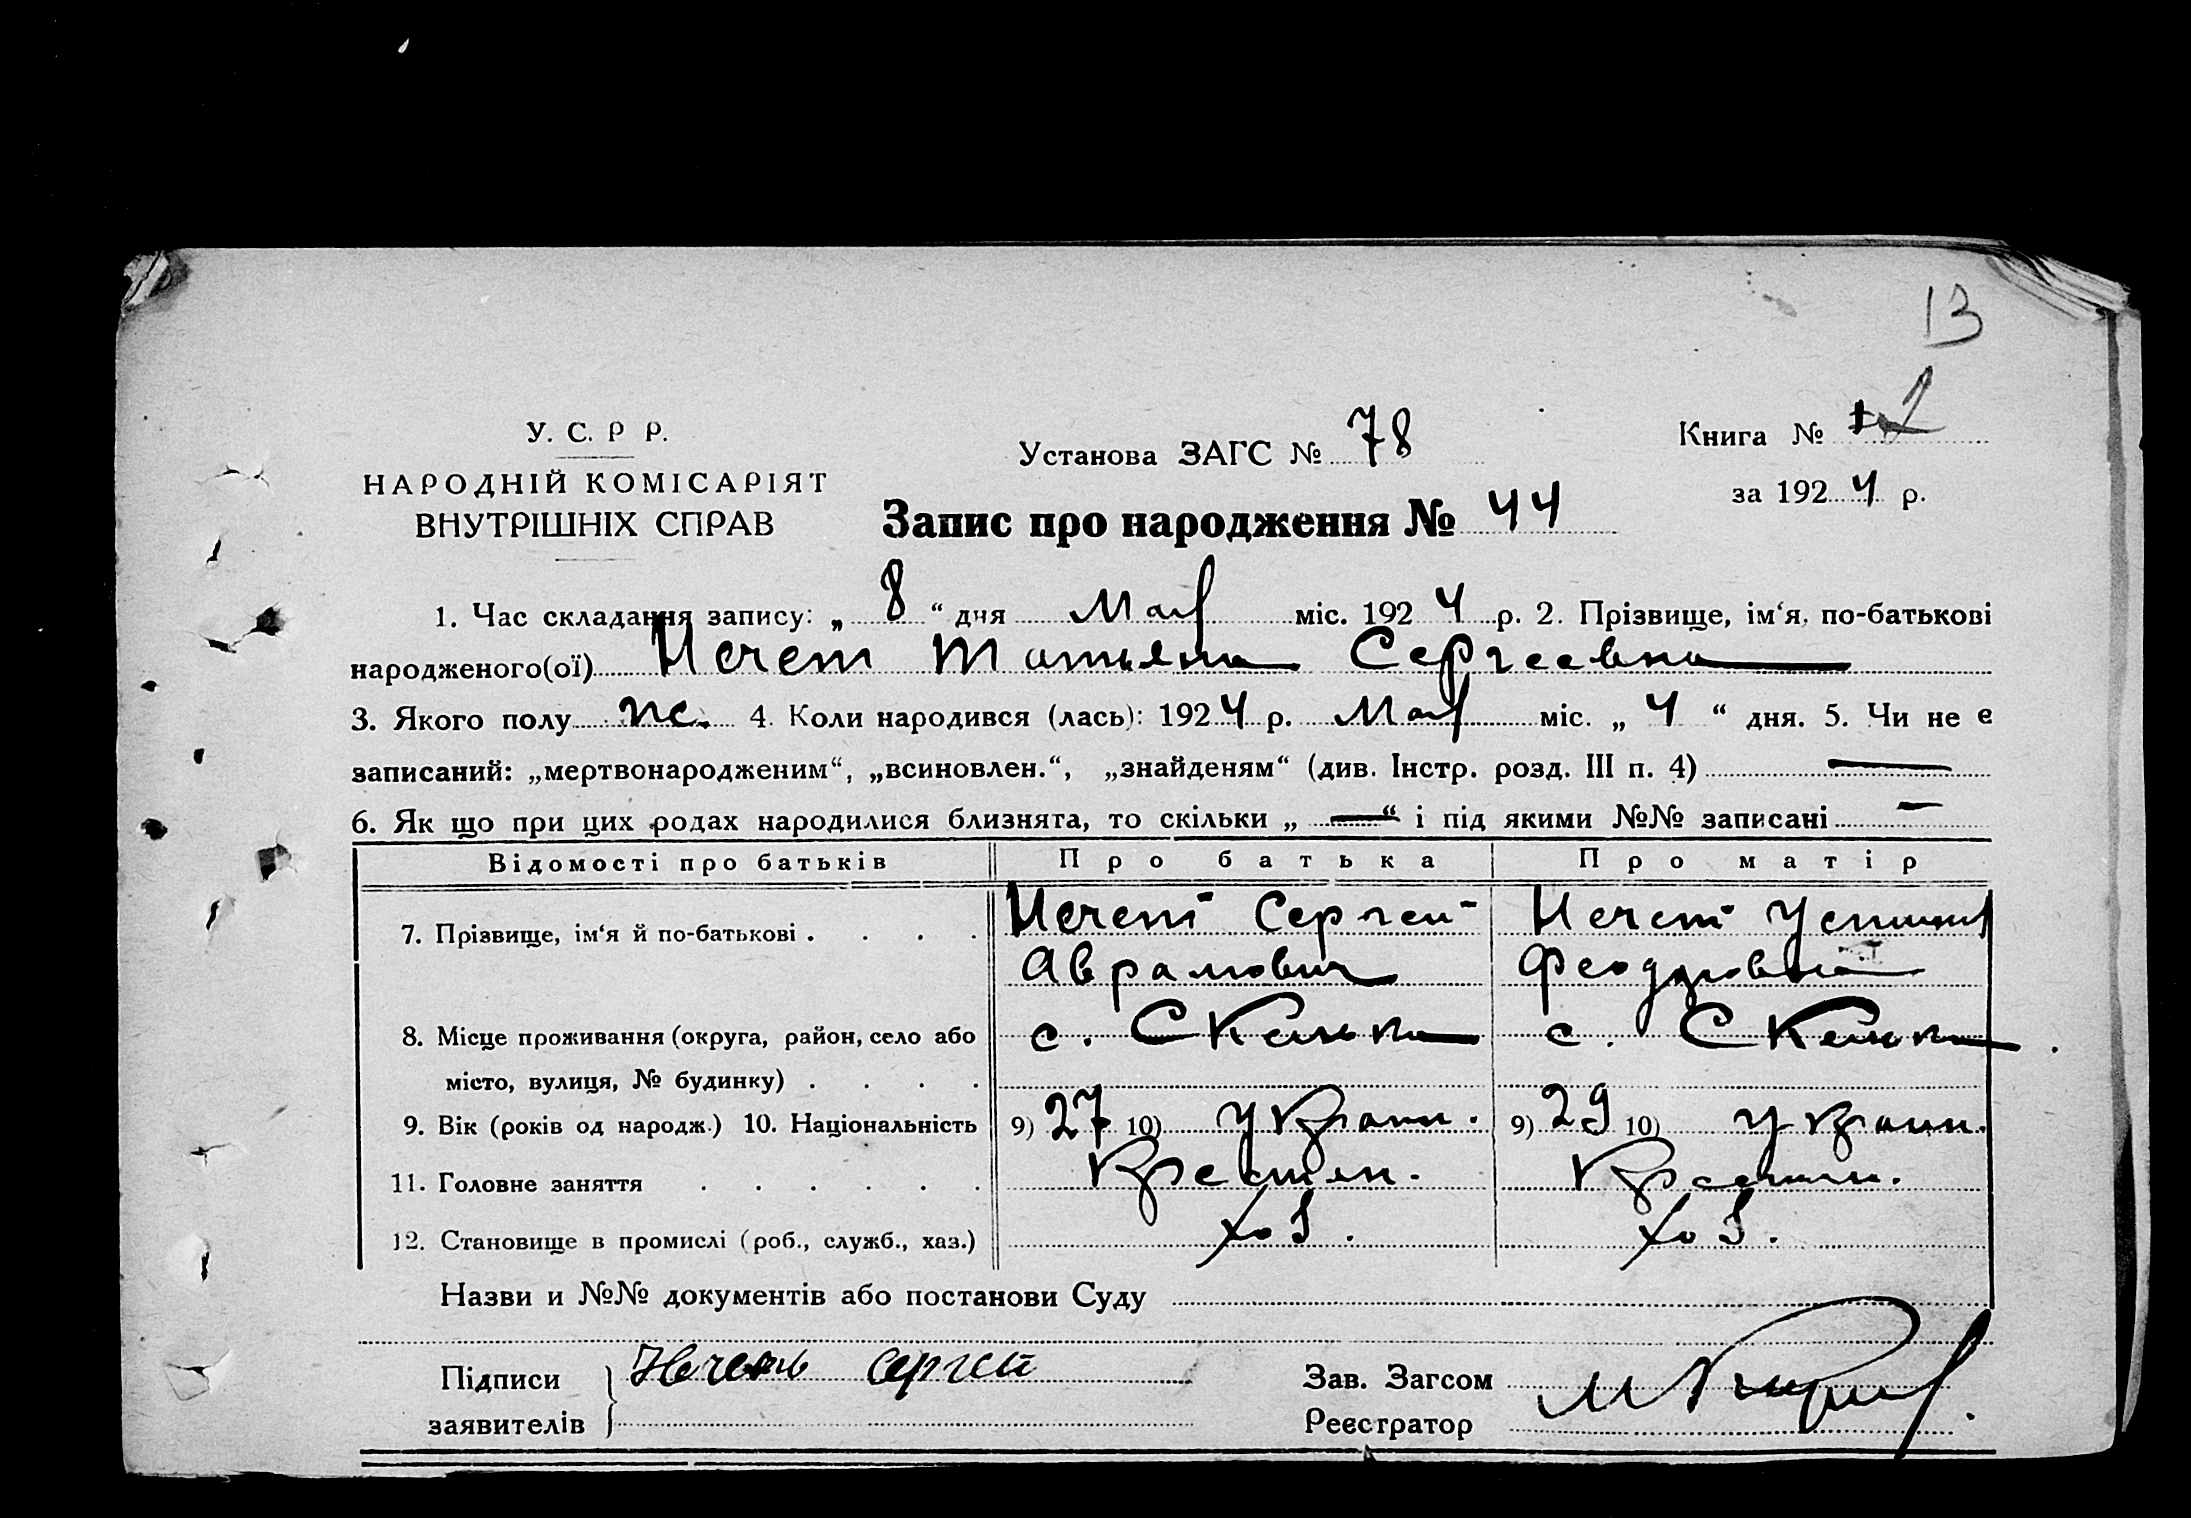 13
У. С. Р Р.
НАРОДНІЙ КОМІСАРІЯТ
ВНУТРІШНІХ СПРАВ
Установа ЗАГС № 78
Книга № 2
за 1924 р.
Запис про народження № 44
1. Час складання запису: „ 8 “ дня Мар міс. 1924 р. 2. Прізвище, ім‘я, по-батькові
народженого(ої) Нечет Татьяна Сергеевна
3. Якого полу ж. 4. Коли народився (лась): 1924 р. Мар міс. „ 4 “ дня. 5. Чи не є
записаний: „мертвонародженим“, „всиновлен.“, „знайденям“ (див. Інстр. розд. III п. 4) —
6. Як що при цих родах народилися близнята, то скільки „ — “ і під якими №№ записані —
Відомості про батьків Про батька Про матір
7. Прізвище, ім‘я й по-батькові . . . . Нечет Сергей Нечет
Аврамович Феодоровна
8. Місце проживання (округа, район, село або с. с.
місто, вулиця, № будинку) . . . .
9. Вік (років од народж.) 10. Національність 9) 27 10) Украин. 9) 29 10) Украин.
11. Головне заняття . . . . . . Крестян. Крестян.
12. Становище в промислі (роб., служб., хаз.) хоз. хоз.
Назви и №№ документів або постанови Суду
Підписи Сергей Зав. Загсом
заявителів Реєстратор